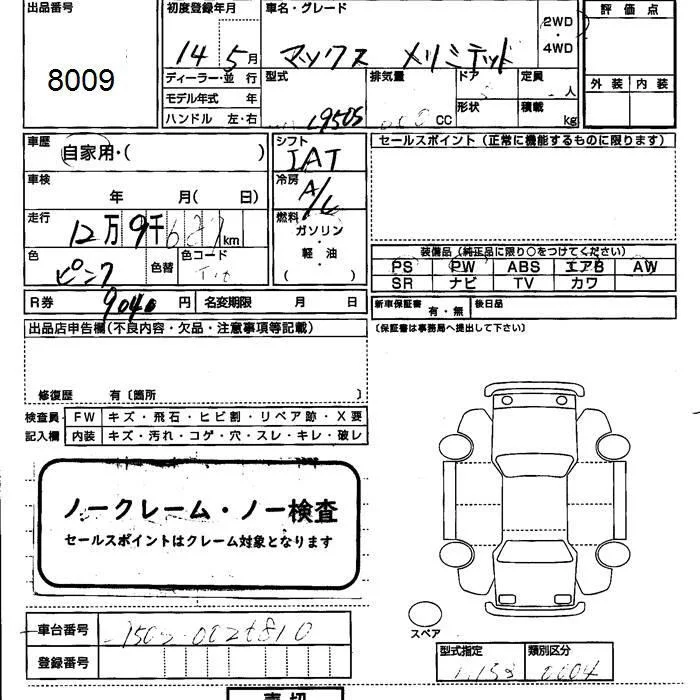 出品番号
8009
初度登録年月
14 5月
車名・グレード
マックス メリミテッド
2WD
・
4WD
評価点
外装 内装
ディーラー・並 行
モデル年式 年
ハンドル 左・右
型式
L950S
排気量
cc
ドア
形状
定員
人
積載
kg
車歴
自家用・( )
車検
年 月( 日)
走行
12万9千 km
色
ピンク
色替
色コード
R券
9040 円
名変期限 月 日
シフト
IAT
冷房
A/C
燃料
ガソリン
・
軽・油
( )
セールスポイント(正常に機能するものに限ります)
装備品(純正品に限り○をつけてください)
PS PW ABS エアB AW
SR ナビ TV カワ
新車保証書
有・無
後日品
(保証書は事務局へ提出して下さい)
出品店申告欄(不良内容・欠品・注意事項等記載)
修復歴 有〔箇所 〕
検査員 FW キズ・飛石・ヒビ割・リペア跡・X要
記入欄 内装 キズ・汚れ・コゲ・穴・スレ・キレ・破レ
ノークレーム・ノー検査
セールスポイントはクレーム対象となります
車台番号
登録番号
スペア
型式指定
類別区分
0004
売切